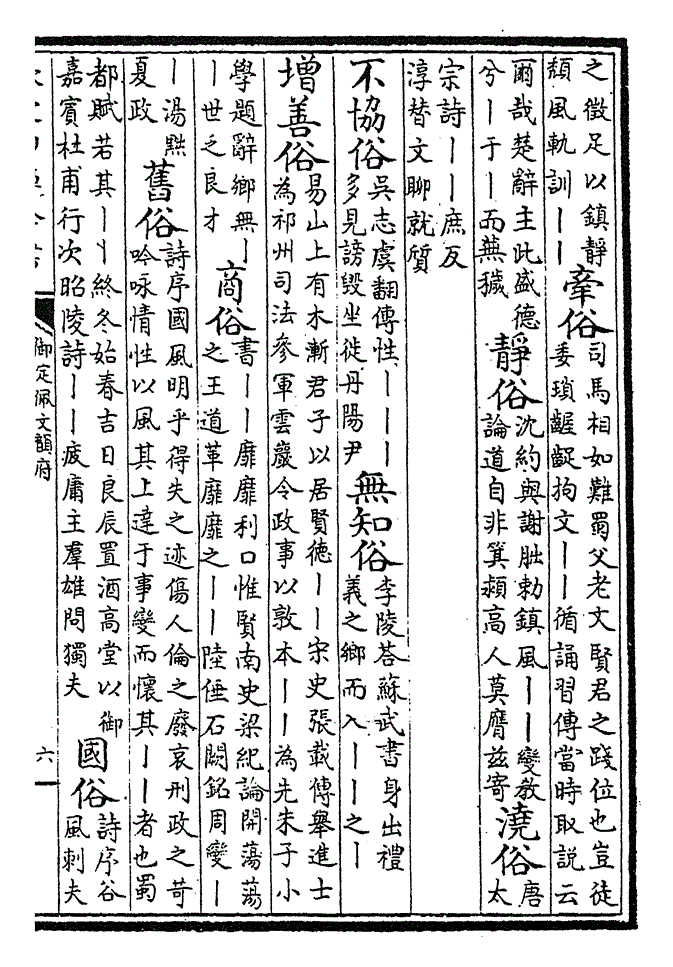 之徵足以鎮靜
頽風軌訓丨丨
牽俗
司馬相如難蜀父老文賢君之踐位也豈徒
委瑣齷齪拘文丨丨循誦習傳當時取說云
爾哉楚辭主此盛德
兮丨于丨而蕪穢
靜俗
沈約與謝朏勅鎮風丨丨變教
論道自非箕潁高人莫膺兹寄
澆俗
唐
太
宗詩丨丨庶反
淳替文聊就質
不協俗
吳志虞翻傳性丨丨丨
多見謗毀坐徙丹陽尹
無知俗
李陵荅蘇武書身出禮
義之鄉而入丨丨之丨
增善俗
易山上有木漸君子以居賢德丨丨宋史張載傳舉進士
為祁州司法參軍雲巖令政事以敦本丨丨為先朱子小
學題辭鄉無丨
丨世乏良才
商俗
書丨丨靡靡利口惟賢南史梁紀論開蕩蕩
之王道革靡靡之丨丨陸倕石闕銘周變丨
丨湯黜
夏政
舊俗
詩序國風明乎得失之迹傷人倫之廢哀刑政之苛
吟咏情性以風其上達于事變而懷其丨丨者也蜀
都賦若其丨丨終冬始春吉日良辰置酒高堂以御
嘉賓杜甫行次昭陵詩丨丨疲庸主羣雄問獨夫
國俗
詩序谷
風刺夫
御定佩文韻府
六